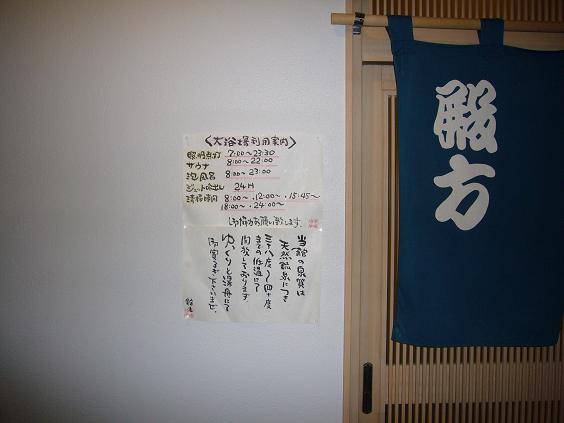 <大浴場利用案内>
照明点灯 7:00～23:30
サウナ 8:00～22:00
泡風呂 8:00～23:00
ジェット吹出し 24H
清掃時間 8:00～・12:00～・15:45～
18:00～・24:00～
御協力お願い致します。
当館の泉質は
天然鉱泉につき
三十八度～四十度
までの低温にて
開放しております
ゆっくりと湯舟にて
御寛ろぎ下さいませ。
殿方